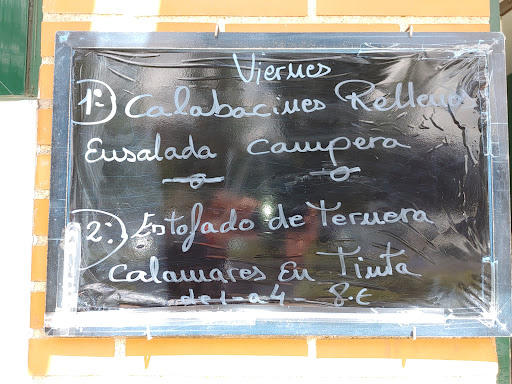 Viernes
1º Calabacines Rellenos
Ensalada campera
2º Estofado de Ternera
Calamares En Tinta
de 1 a 4 - 8 €